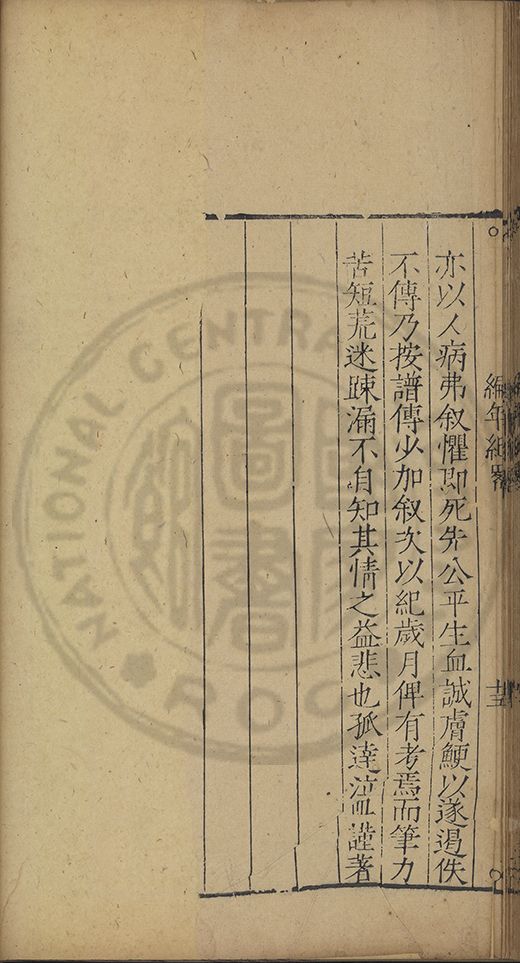 編年紀畧
亦以人病弗叙懼即死先公平生血誠膚鯁以遂遏佚
不傳乃按譜傳少加叙次以紀歲月俾有考焉而筆力
苦短荒迷踈漏不自知其情之益悲也孤逵泣血謹著
NATIONAL CENTRAL
ROC
圖
書